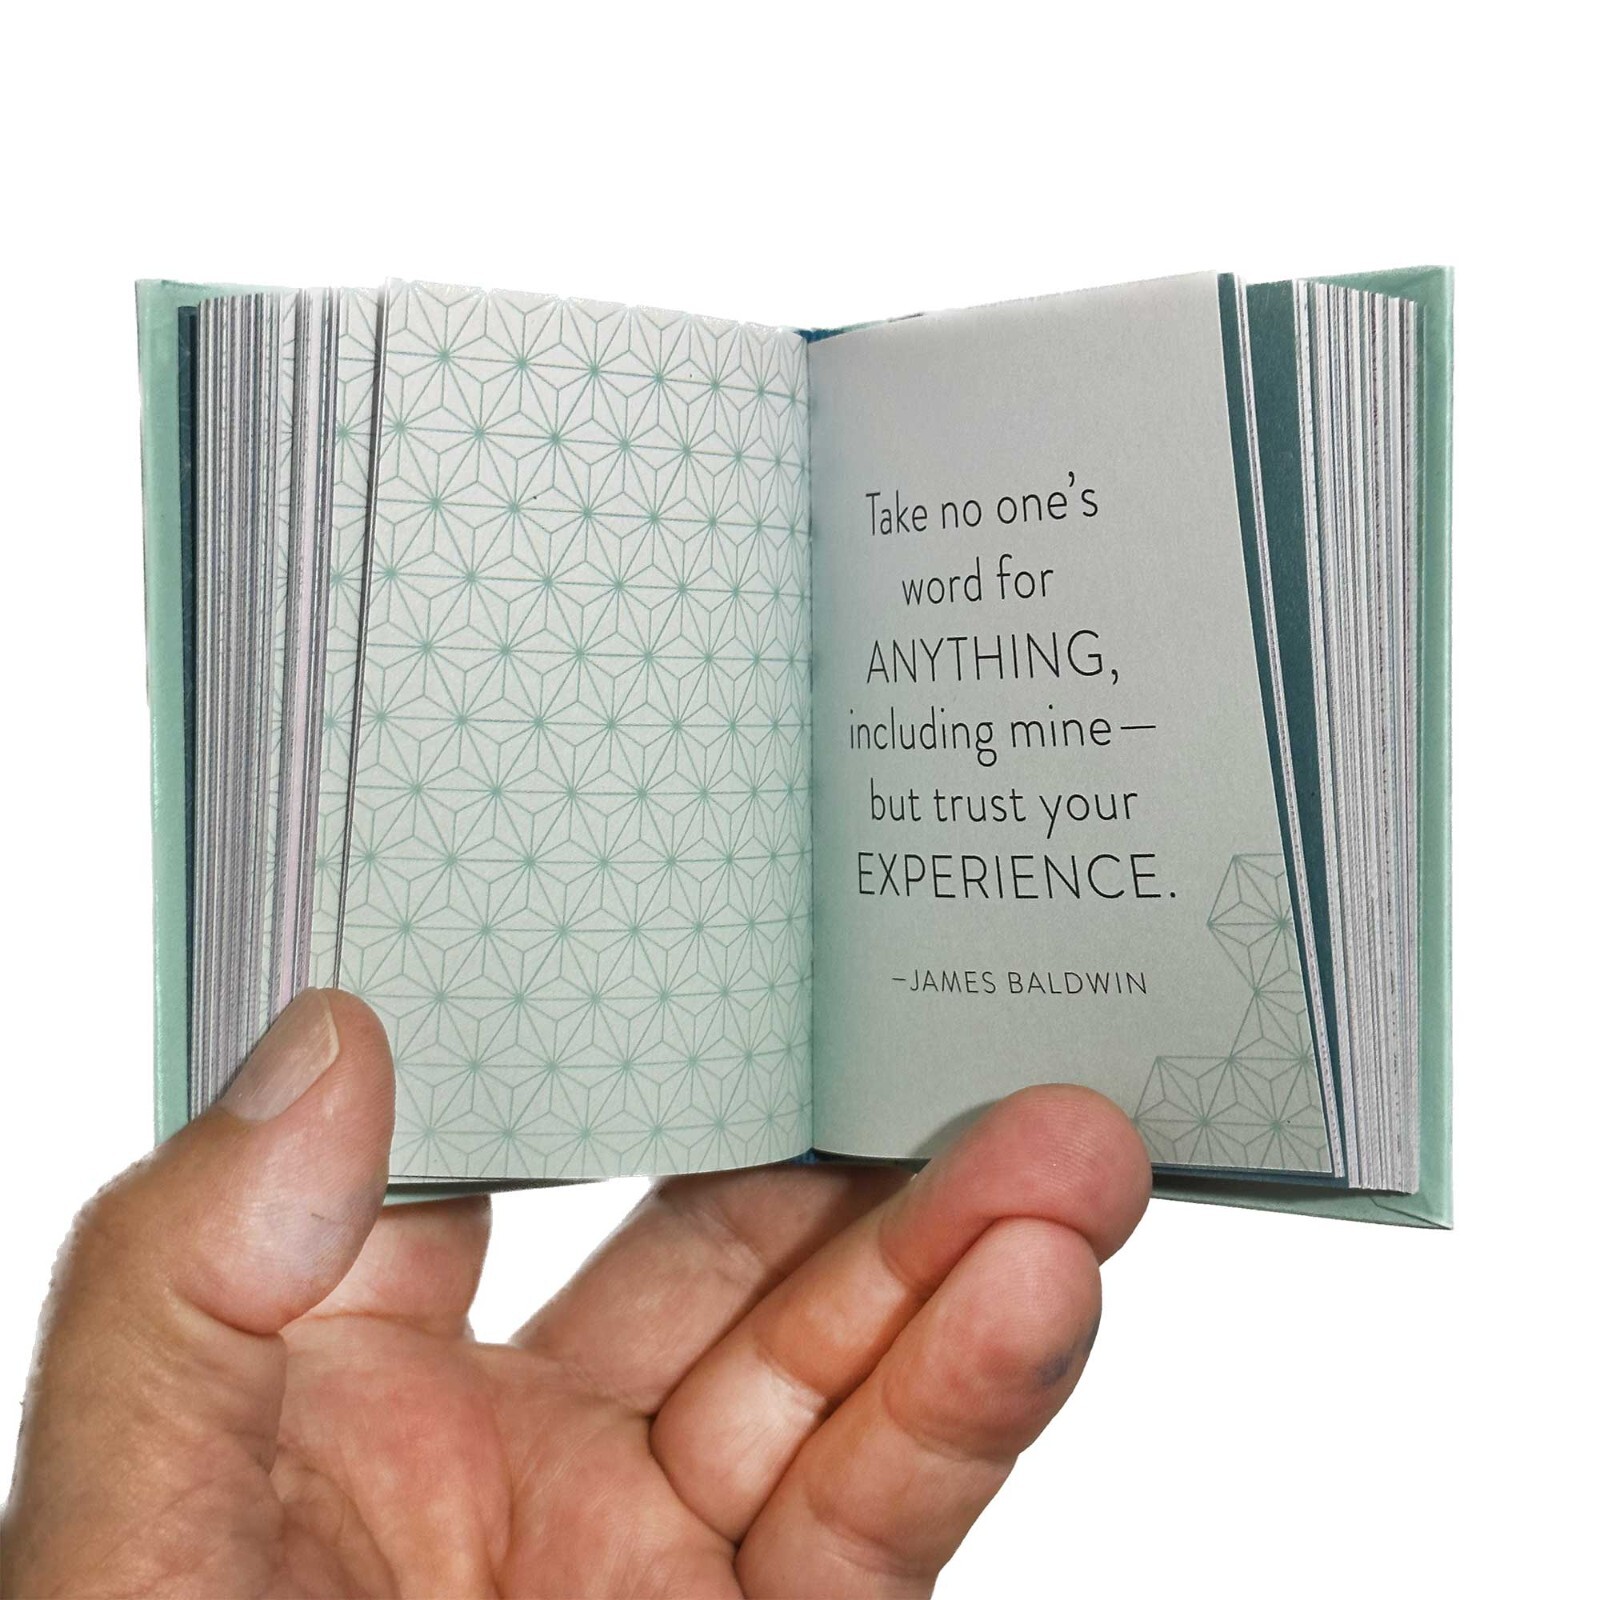 Take no one’s
word for
ANYTHING,
including mine—
but trust your
EXPERIENCE.
–JAMES BALDWIN